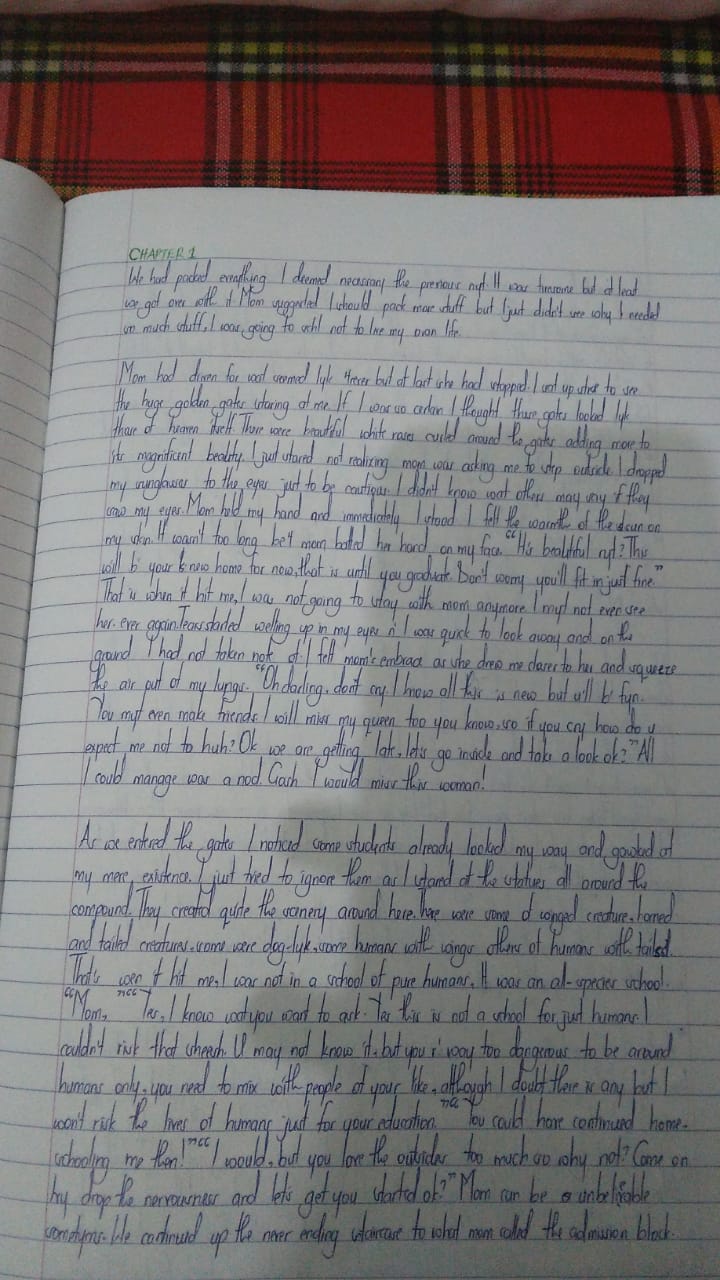 CHAPTER 1
We had packed everything I deemed necessary the previous nyt. It was tiresome but at least
we got over with it. Mom suggested I should pack more stuff but I just didn't see why I needed
so much stuff, I was going to schl not to live my own life.
Mom had driven for wat seemed lyk 4rever but at last she had stopped. I sat up str8 to see
the huge golden gates staring at me. If I was so certain I thought these gates looked lyk
those of heaven itself. There were beautiful white roses curled around the gates adding more to
its magnificent beauty. I just stared not realizing mom was asking me to step outside. I dropped
my sunglasses to the eyes just to be cautious. I didn't know wat others may say if they
saw my eyes. Mom held my hand and immediately I stood I felt the warmth of the sun on
my skin. It wasn't too long be4 mom her hand on my face. "It's beautiful ryt? This
will b' your new home for now, that is until you graduate. Don't worry you'll fit in just fine."
That is when it hit me, I was not going to stay with mom anymore. I myt not even see
her ever again. Tears started welling up in my eyes n' I was quick to look away and on the
ground I had not taken note of. I felt mom's embrace as she drew me closer to her and squeeze
the air out of my lungs. "Oh darling, don't cry. I know all this is new but will b' fun.
You myt even make friends. I will miss my queen too you know, so if you cry how do u
expect me not to huh? Ok we are getting late, let's go inside and take a look ok?" All
I could manage was a nod. Gosh I would miss this woman!
As we entered the gates I noticed some students already looked my way and gawked at
my mere existence. I just tried to ignore them as I stared at the statues all around the
compound. They created quite the scenery around here. here were some of winged creature, horned
and tailed creatures, some were dog-lyk, some humans with wings others of humans with tailed.
That's wen it hit me, I was not in a school of pure humans. It was an al-species school.
"Mom, "" Yes, I know wat you want to ask. Yes this is not a school for just humans. I
couldn't risk that sheesh. U may not know it, but you r' way too dangerous to be around
humans only, you need to mix with people of your like, although I doubt there is any but I
won't risk the lives of humans just for your education." "You could have continued home-
schooling me then!" "I would, but you love the outsides too much so why not? Come on
hq drop the nervousness and let's get you started ok?" Mom can be unbelievable
sometyms. We continued up the never ending staircase to what mom called the admission block.